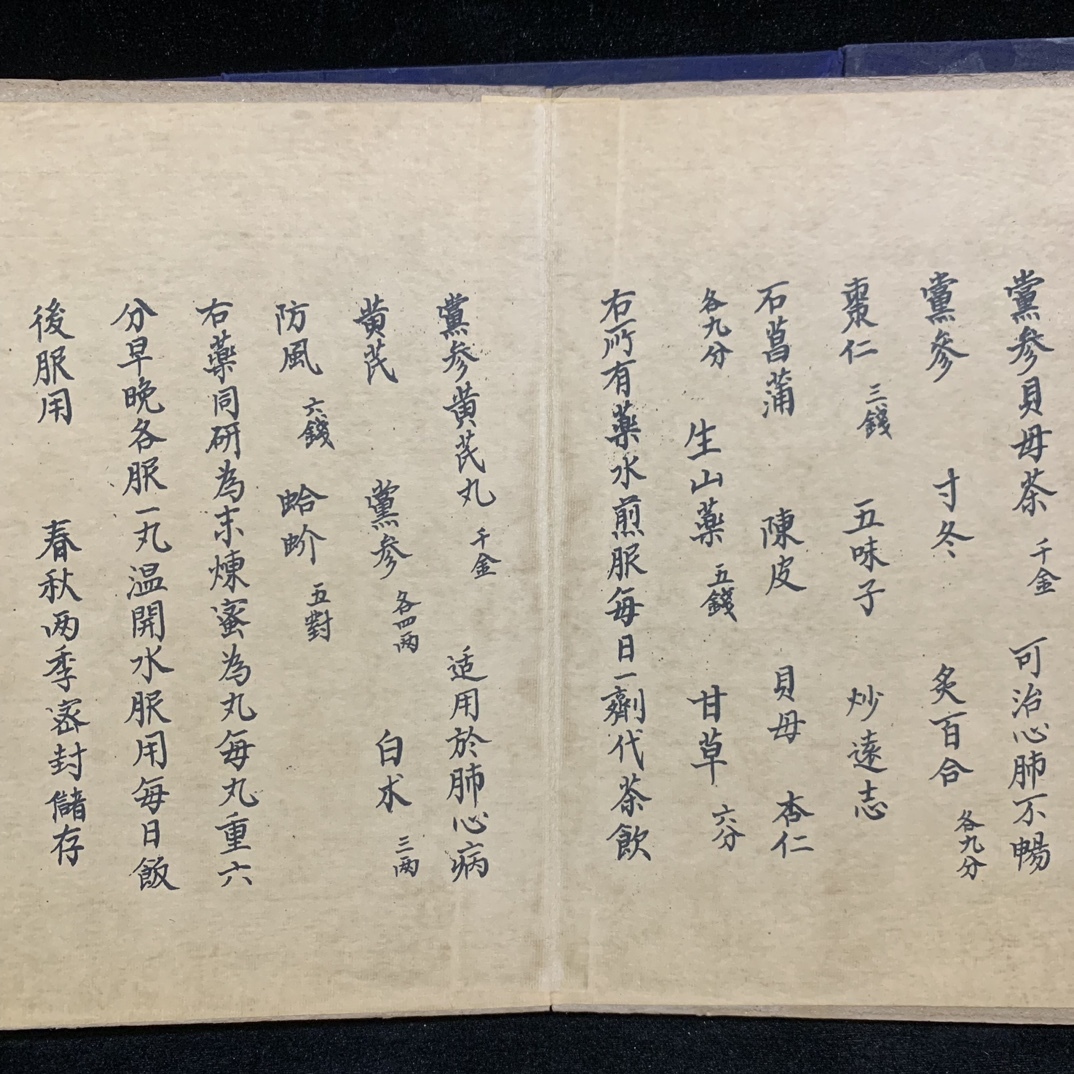 黨參貝母茶 千金 可治心肺不暢
黨參 寸冬 炙百合 各九分
棗仁 三錢 五味子 炒遠志
石菖蒲 陳皮 貝母 杏仁
各九分 生山藥 五錢 甘草 六分
右所有藥水煎服每日一劑代茶飲
黨參黄芪丸 千金 适用於肺心病
黄芪 黨參 各四两 白术 三两
防風 六錢 蛤蚧 五對
右藥同研為末煉蜜為丸每丸重六
分早晚各服一丸温開水服用每日飯
後服用 春秋两季密封儲存